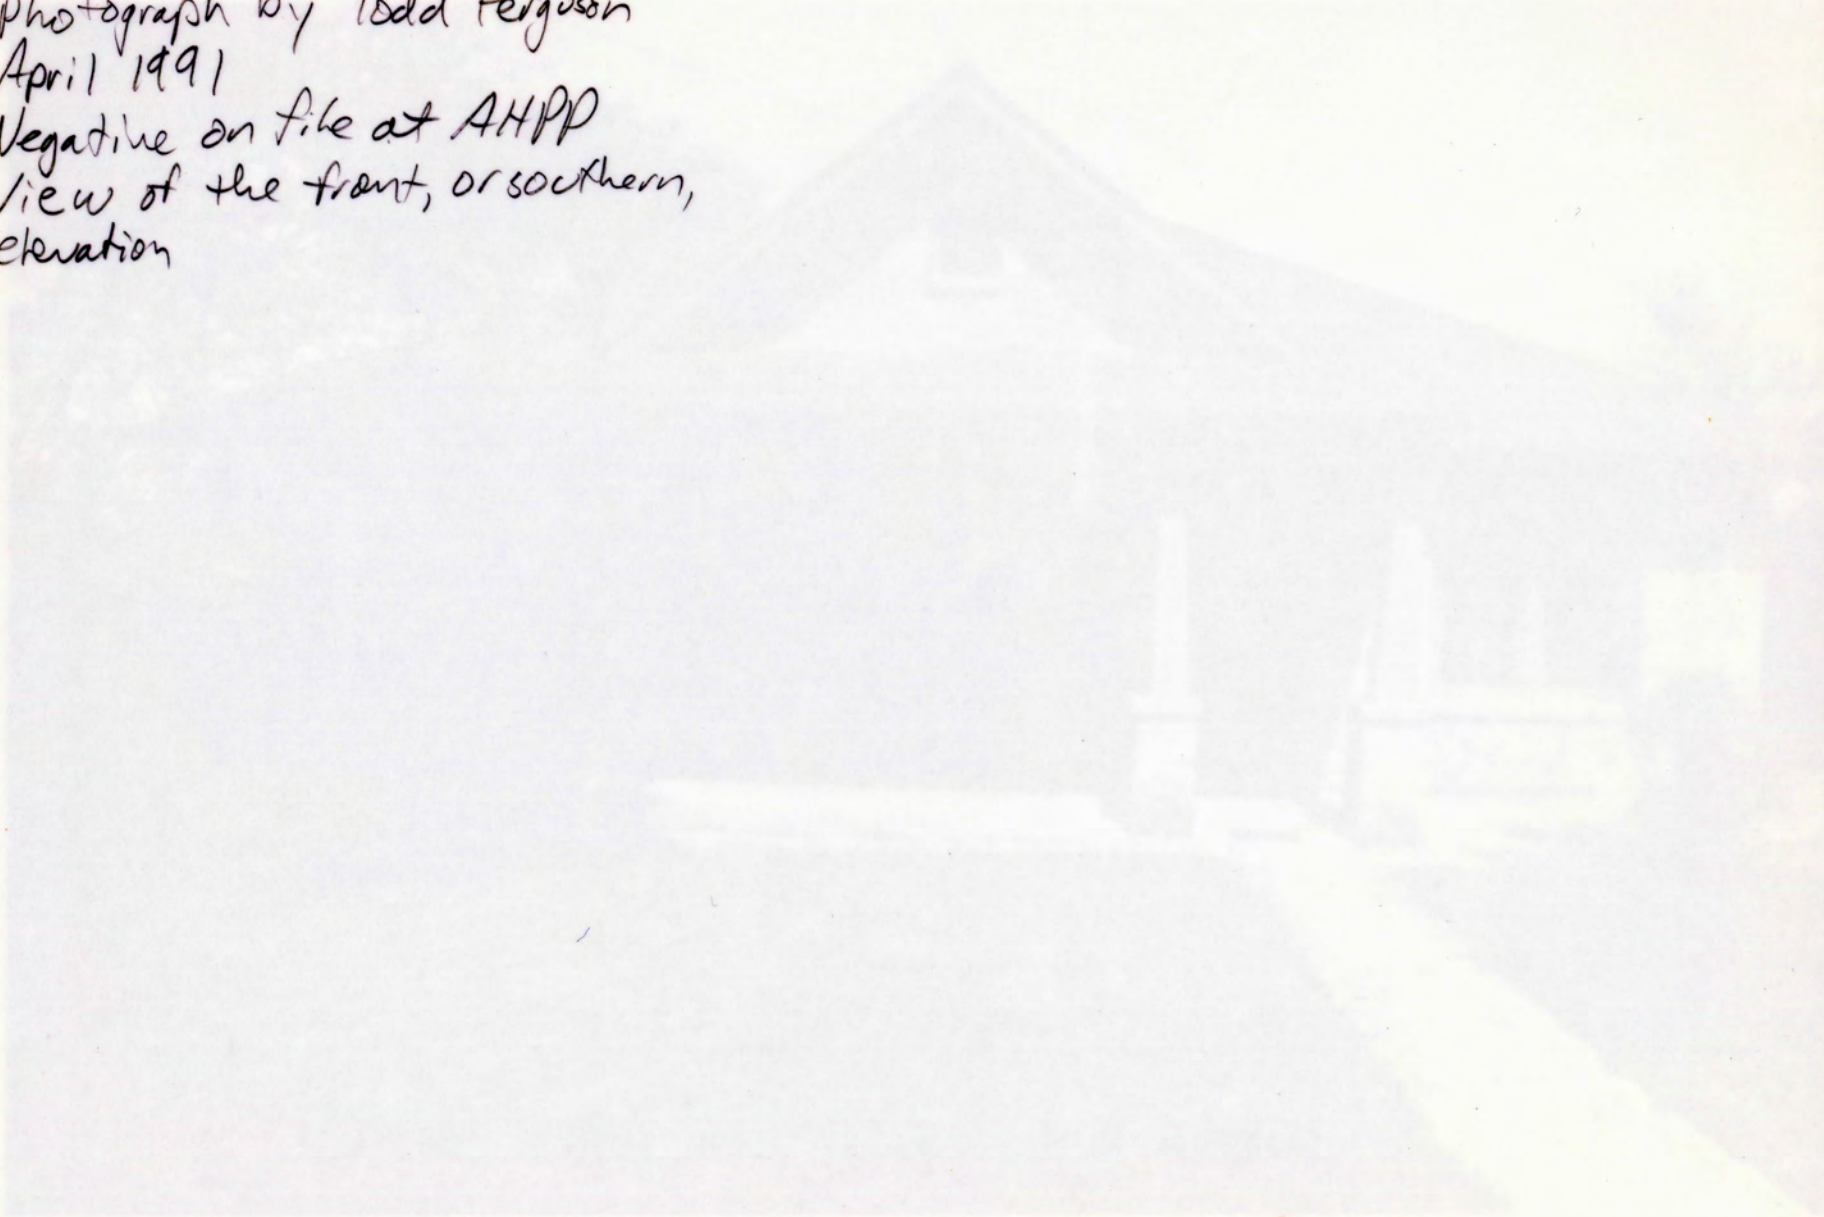 Photograph by Todd Ferguson
April 1991
Negative on file at AHPP
View of the front, or southern,
elevation